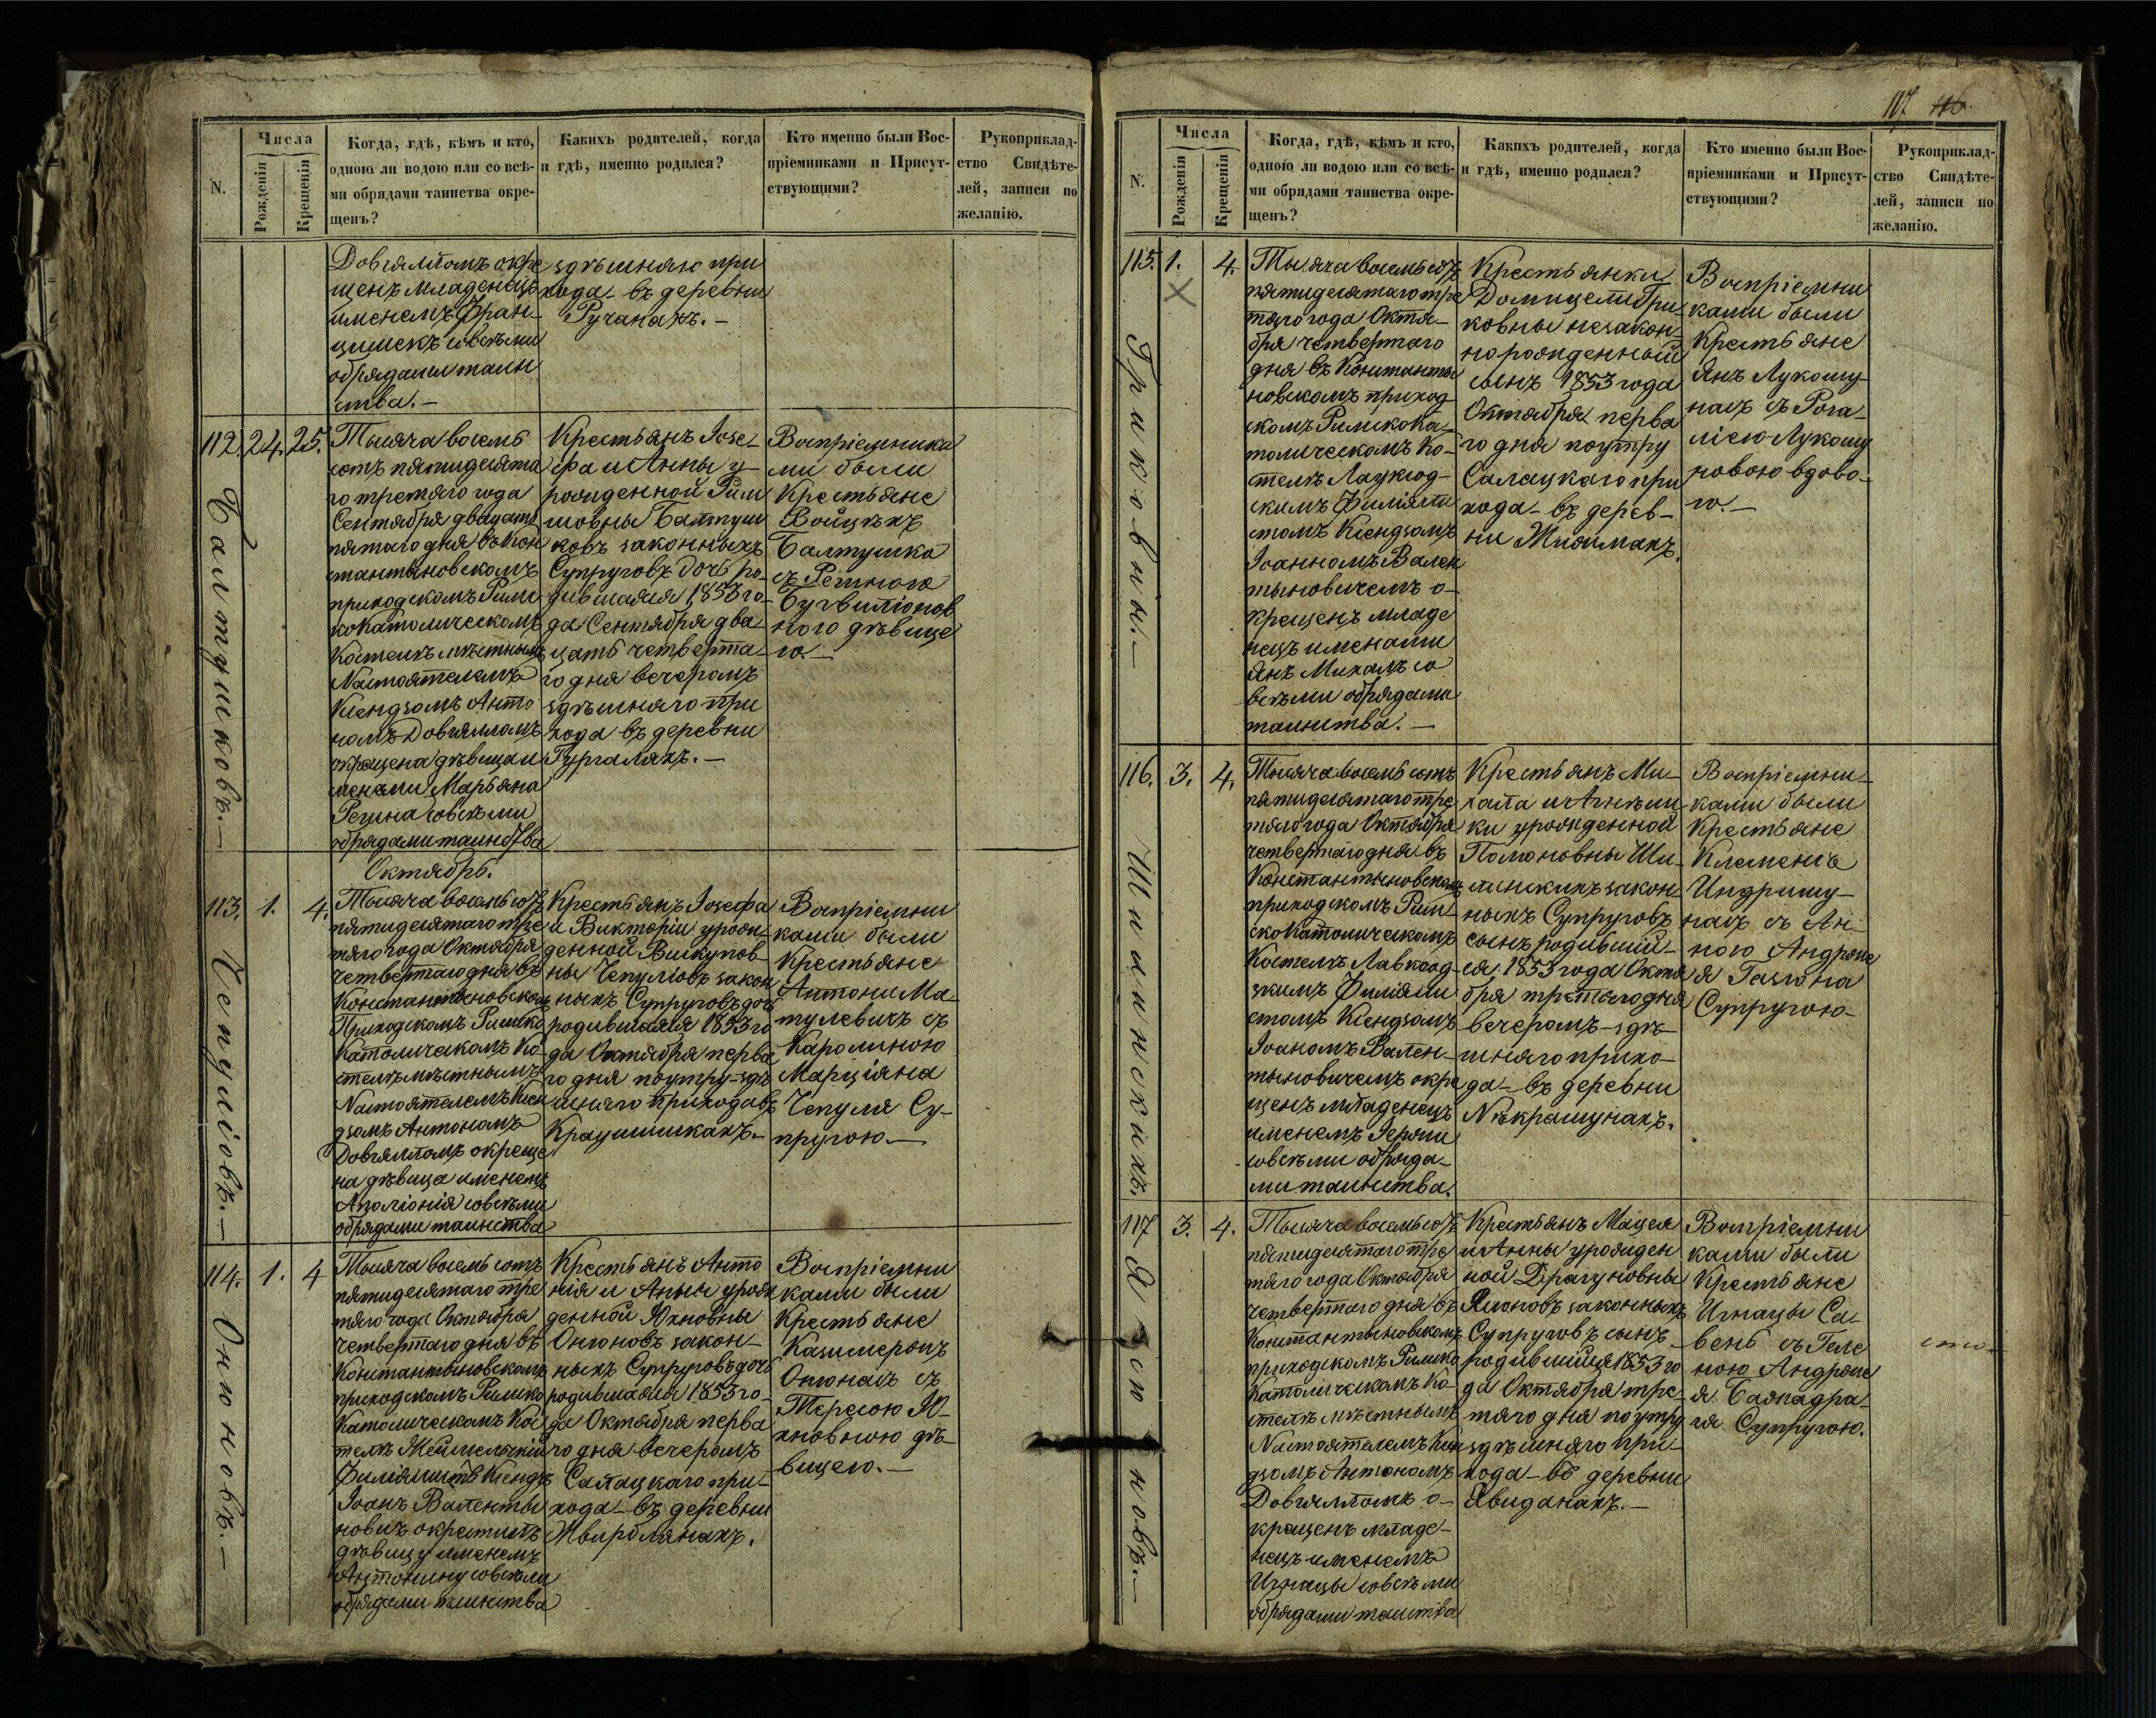 N.
Числа
Рожденія
Крещенія
Когда, гдѣ, кѣмъ и кто,
одною ли водою или со всѣ-
ми обрядами таинства окре-
щенъ?
Какихъ родителей, когда
и гдѣ, именно родился?
Кто именно были Вос-
пріемниками и Присут-
ствующими?
Рукоприклад-
ство Свидѣте-
лей, записи по
желанію.
Довгялломъ окре
щенъ младенецъ
именемъ Фран-
цишекъ совсѣми
обрядами таин
ства.-
здѣшняго при
хода- въ деревни
Ручанахъ.-
112. 24. 25.
Балтушковъ.-
Тысяча восемь
сотъ пятидесята
го третяго года
Сентября двацать
пятаго дня въ Кон
стантыновскомъ
приходскомъ Рим
скокатолическомъ
Костелѣ мѣстнымъ
Настоятелемъ
Ксендзомъ Анто
номъ Довгялломъ
окрещена дѣвица и
менами Марьяна
Регина совсѣми
обрядами таинства
Крестьянъ Іозе-
фа и Анны у-
рожденной Рим
шовны Балтуш
ковъ законныхъ
Супруговъ дочь ро-
дившаяся 1853 го-
да Сентября два-
цать четверта-
го дня вечеромъ
здѣшняго при
хода въ деревни
Гургаляхъ.-
Воспріемника
ми были
Крестьяне
Войцѣхъ
Балтушка
съ Региною
ною дѣвице
ю.-
Октябрь.
113. 1. 4.
Чепуліовъ.-
Тысяча восемь сотъ
пятидесятаго тре
тяго года Октября
четвертаго дня въ
Константыновскомъ
Приходскомъ Римско
Католическомъ Ко-
стелѣ мѣстнымъ
Настоятелемъ Ксен
дзомъ Антономъ
Довгялломъ окреще
на дѣвица именемъ
Аполіонія совсѣми
обрядами таинства
Крестьянъ Іозефа
и Викторіи урож-
денной Вискупов-
ны Чепуліовъ закон
ныхъ Супруговъ дочь
родившаяся 1853 го
да Октября перва
го дня поутру-здѣ
шняго прихода въ
Краушишкахъ.-
Воспріемни
ками были
Крестьяне
Антони Ма-
тулевичъ съ
Каролиною
Марціяна
Чепуля Су-
пругою.-
114. 1. 4
Онюновъ.-
Тысяча восемь сотъ
пятидесятаго тре
тяго года Октября
четвертаго дня въ
Константыновскомъ
приходскомъ Римско
Католическомъ Кос
телѣ
Филіялистъ Ксендзъ
Іоанъ Валенты
новичъ окрестилъ
дѣвицу именемъ
Антонину совсѣми
обрядами таинства
Крестьянъ Анто
нія и Анны урож
денной Юхновны
Онюновъ закон-
ныхъ Супруговъ дочь
родившаяся 1853 го-
да Октября перва
го дня вечеромъ
Салацкаго при-
хода- въ деревни
Жвирблянахъ.
Воспріемни
ками были
Крестьяне
Казимеръ
Онюнасъ съ
Тересою Ю-
хновною дѣ-
вицею.-
117 116.
N.
Числа
Рожденія
Крещенія
Когда, гдѣ, кѣмъ и кто,
одною ли водою или со всѣ-
ми обрядами таинства окре-
щенъ?
Какихъ родителей, когда
и гдѣ, именно родился?
Кто именно были Вос-
пріемниками и Присут-
ствующими?
Рукоприклад-
ство Свидѣте-
лей, записи по
желанію.
115. 1. 4.
Гриковны.-
Тысяча восемь сотъ
пятидесятаго тре
тяго года Октя-
бря четвертаго
дня въ Константы
новскомъ приход
скомъ Римскока-
толическомъ Ко-
стелѣ
скимъ Филіяли
стомъ Ксендзомъ
Іоанномъ Вален
тыновичемъ о-
крещенъ младе
нецъ именами
Янъ Михалъ со
всѣми обрядами
таинства.-
Крестьянки
Домицели Гри-
ковны незакон-
норожденный
сынъ 1853 года
Октября перва
го дня поутру
Салацкаго при
хода- въ дерев-
ни
Воспріемни
ками были
Крестьяне
Янъ Лукошу-
насъ съ Рога-
ліею Лукошу
новою вдово-
ю.-
116. 3. 4.
Шилинскихъ.
Тысяча восемь сотъ
пятидесятаго тре
тяго года Октября
четвертаго дня въ
Константыновскомъ
приходскомъ Рим-
скокатолическомъ
Костелѣ Лавкод-
зкимъ Филіяли
стомъ Ксендзомъ
Іоаномъ Вален-
тыновичемъ окре
щенъ младенецъ
именемъ Героним
совсѣми обряда-
ми таинства.
Крестьянъ Ми-
хала и Агнѣш
ки урожденной
ныхъ Супруговъ
сынъ родивший-
ся 1853 года Октя
бря третяго дня
вечеромъ-здѣ-
шняго прихо-
да- въ деревни
Нѣкрашунахъ.
Воспріемни-
ками были
Крестьяне
Клеменсъ
Индришу-
насъ съ Ан-
ною Андрже
я Гаснона
Супругою-
117 3. 4.
Ясюновъ.-
Тысяча восемь сотъ
пятидесятаго тре
тяго года Октября
четвертаго дня въ
Константыновскомъ
приходскомъ Римско
Католическомъ Ко-
стелѣ мѣстнымъ
Настоятелемъ Ксен
дзомъ Антономъ
Довгялломъ о-
крещенъ младе-
нецъ именемъ
Игнацы совсѣми
обрядами таинства
Крестьянъ Мацея
и Анны урожден
ной Драгуновны
Ясюновъ законныхъ
Супруговъ сынъ
родившійся 1853 го
да Октября тре-
тяго дня поутру
здѣшняго при-
хода- въ деревни
Явиданахъ.-
Воспріемни
ками были
Крестьяне
Игнацы Са-
вень съ Геле
ною Андрже
я
гя Супругою.